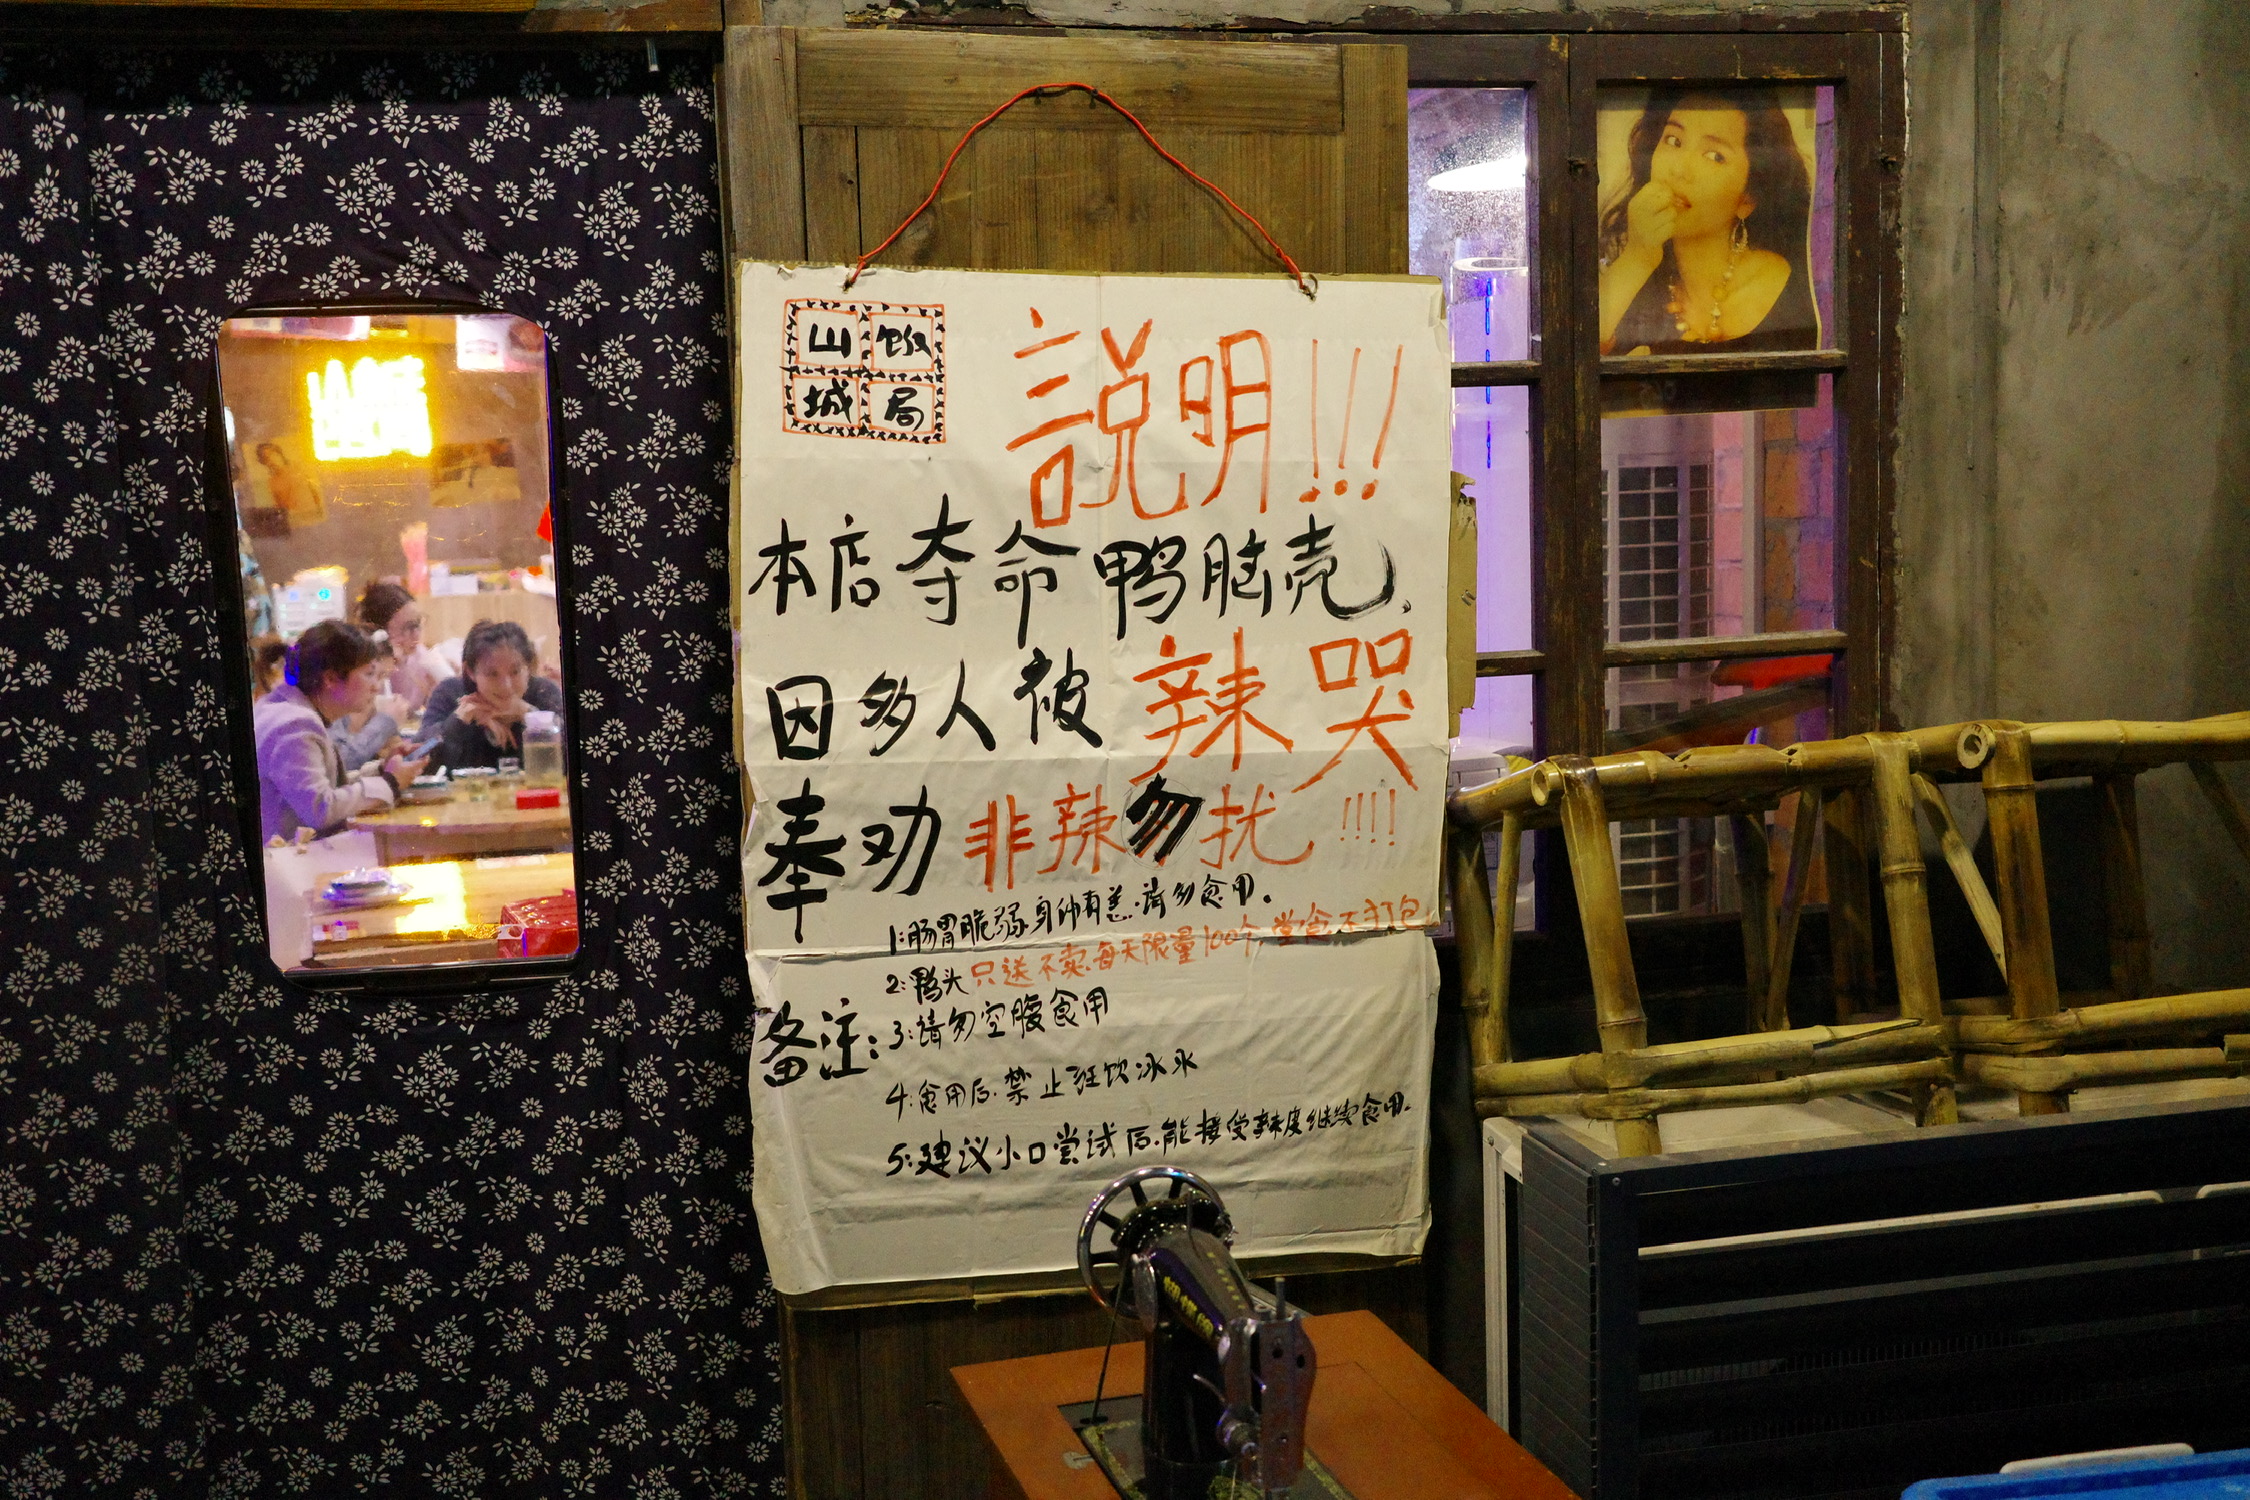 山饭
城局
説明!!!
本店夺命鸭脑壳、
因多人被辣哭
奉劝非辣勿扰!!!!
备注:
1:肠胃脆弱身体有恙.请勿食用。
2:鸭头只送不卖.每天限量100个,堂食不打包
3:请勿空腹食用
4:食用后.禁止狂饮冰水
5:建议小口尝试后.能接受辣度继续食用.